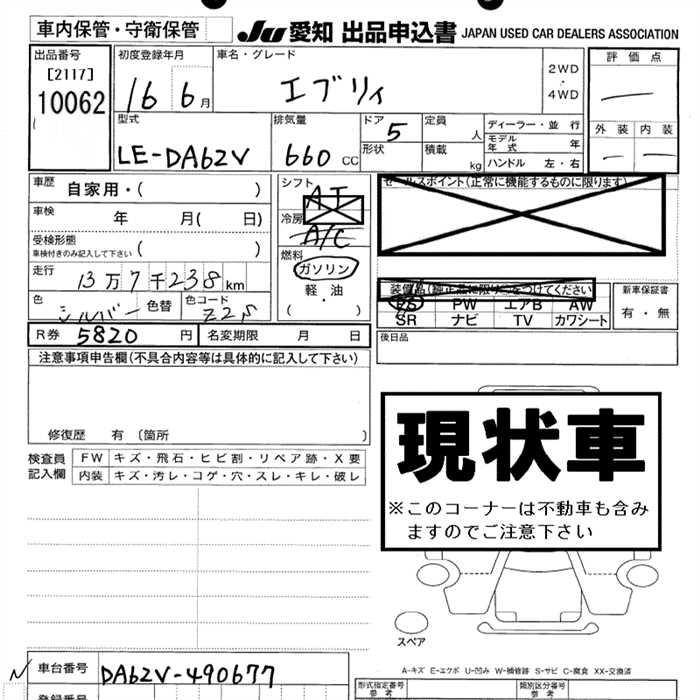 車内保管・守衛保管
JU 愛知 出品申込書 JAPAN USED CAR DEALERS ASSOCIATION
出品番号
[2117]
10062
初度登録年月
16 6月
車名・グレード
エブリィ
2WD
・
4WD
評価点
外装 内装
型式
LE-DA62V
排気量
660 CC
ドア 5
形状
定員 人
積載 kg
ディーラー・並 行
モデル年式 年
ハンドル 左・右
車歴 自家用・( )
車検 年 月( 日)
受検形態
車検付きのみ記入して下さい ( )
走行 13万7千238km
色 シルバー 色替 色コード Z2S
シフト AT
冷房 A/C
燃料
ガソリン
軽・油
( )
セールスポイント(正常に機能するものに限ります)
装備品(純正品に限り○をつけてください)
PS PW エアB AW
SR ナビ TV カワシート
新車保証書
有・無
R券 5820 円 名変期限 月 日
後日品
注意事項申告欄(不具合内容等は具体的に記入して下さい)
修復歴 有〔箇所 〕
検査員記入欄
FW キズ・飛石・ヒビ割・リペア跡・X要
内装 キズ・汚レ・コゲ・穴・スレ・キレ・破レ
現状車
※このコーナーは不動車も含み
ますのでご注意下さい
スペア
A-キズ E-エクボ U-凹み W-補修跡 S-サビ C-腐食 XX-交換済
車台番号 DA62V-490677
登録番号
形式指定番号
参考
類別区分番号
参考